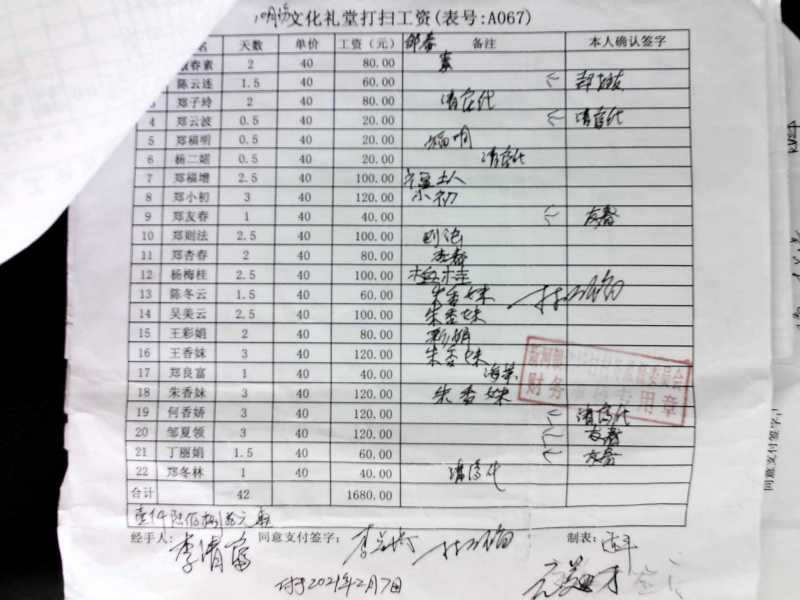 文化礼堂打扫工资(表号:A067)
名 天数 单价 工资（元） 备注 本人确认签字
春素 2 40 80.00 素
陈云连 1.5 40 60.00
3 郑子玲 2 40 80.00 清富代
4 郑云波 0.5 40 20.00 清富代
5 郑福明 0.5 40 20.00 福明
6 杨二媚 0.5 40 20.00 清富代
7 郑福增 2.5 40 100.00
8 郑小初 3 40 120.00 小初
9 郑友春 1 40 40.00 友春
10 郑则法 2.5 40 100.00 则法
11 郑杏春 2 40 80.00 杏春
12 杨梅桂 2.5 40 100.00 梅桂
13 陈冬云 1.5 40 60.00 朱香妹
14 吴美云 2.5 40 100.00 朱香妹
15 王彩娟 2 40 80.00 彩娟
16 王香妹 3 40 120.00 朱香妹
17 郑良富 1 40 40.00 海荣
18 朱香妹 3 40 120.00 朱香妹
19 何香娇 3 40 120.00 清富代
20 邹夏领 3 40 120.00 友春
21 丁丽娟 1.5 40 60.00 友春
22 郑冬林 1 40 40.00 清富代
合计 42 1680.00
财务 专用章
壹仟陆佰捌拾元
经手人: 李清富 同意支付签字: 制表:
付于2021年2月7日
同意支付签字: